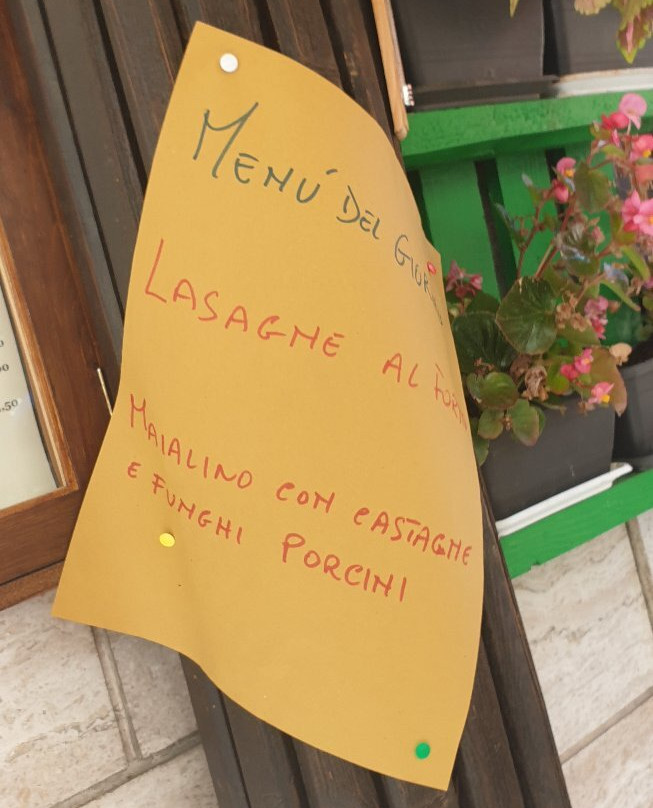 MENÚ DEL
LASAGNE AL FORN
MAIALINO CON CASTAGNE
E FUNGHI PORCINI